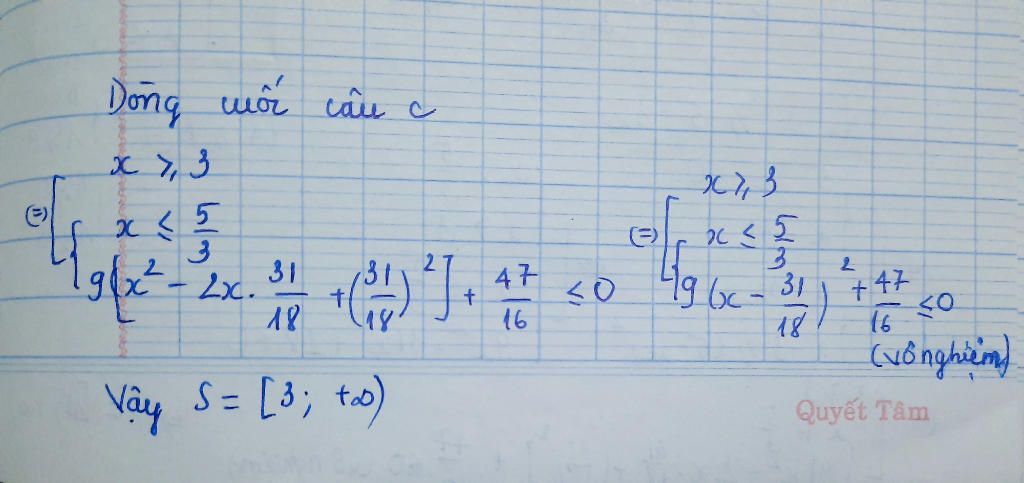 Dòng cuối câu c
x ≥ 3
(=) [ { x ≤ 5/3
9[x² - 2x. 31/18 + (31/18)²] + 47/16 ≤ 0
x ≥ 3
(=) [ { x ≤ 5/3
9(x - 31/18)² + 47/16 ≤ 0
(vô nghiệm)
Vậy S = [3; +∞)
Quyết Tâm